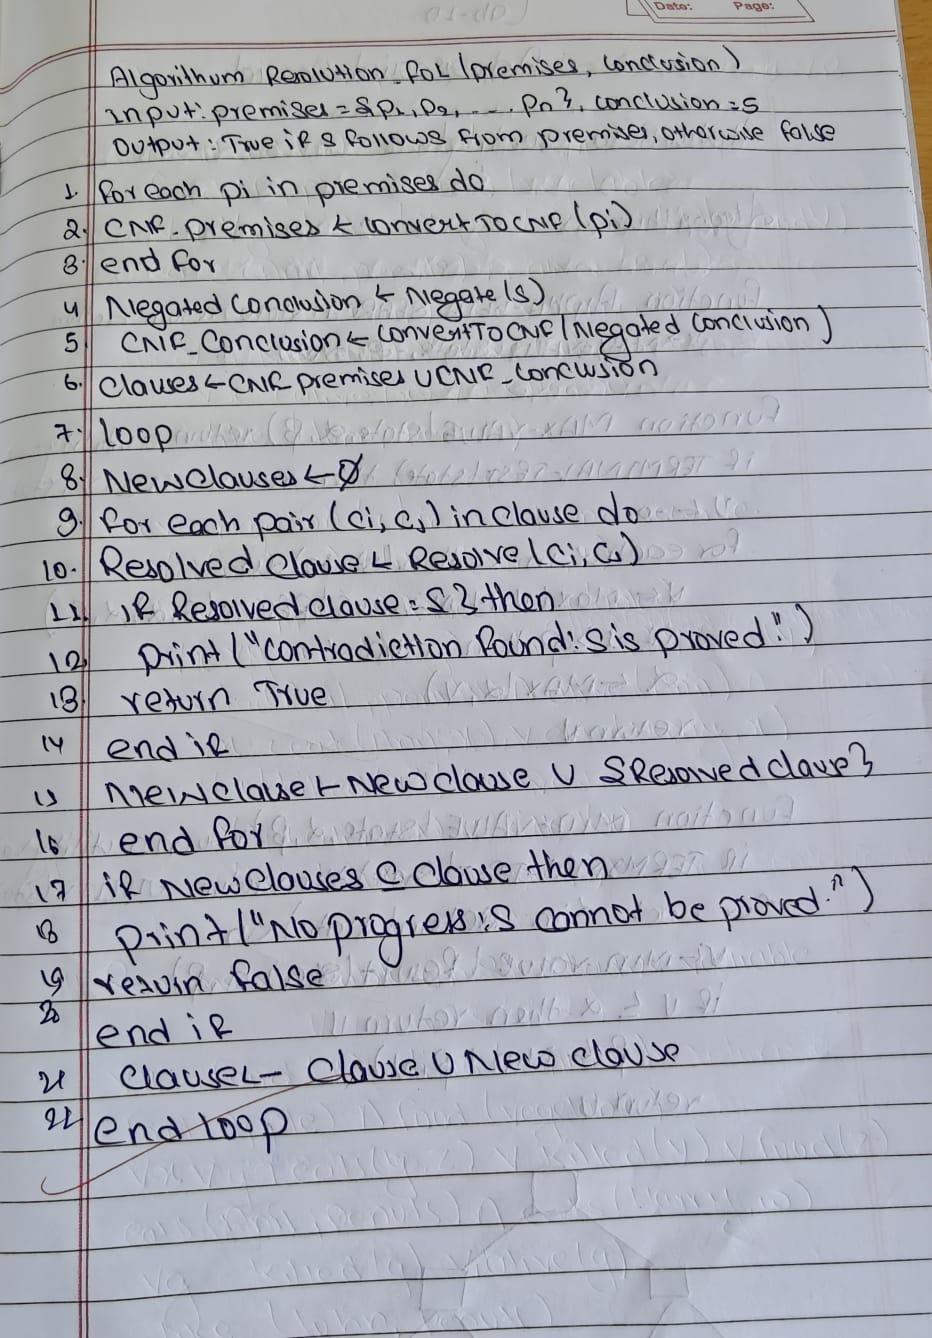 Date: Page:
Algorithum Resolution-FOL (premises, conclusion)
Input: premises = {P1, P2, .... Pn}, conclusion = S
Output: True if S follows from premises, otherwise false
1. for each pi in premises do
2. CNF-premises ← convertToCNF (pi)
3. end for
4 Negated conclusion ← Negate(S)
5 CNF_Conclusion ← ConvertToCNF (Negated conclusion)
6. Clauses ← CNF premises ∪ CNF_conclusion
7. loop
8. NewClauses ← ∅
9. for each pair (ci, cj) in clause do
10. Resolved clause ← Resolve (ci, cj)
11. if Resolved clause = { } then
12 print ("contradiction found: S is proved.")
13. return True
14 end if
15 Newclause ← Newclause ∪ {Resolved clause}
16 end for
17 if NewClauses ⊆ clause then
18 print ("No progress: S cannot be proved.")
19 return false
20 end if
21 Clause ← Clause ∪ New clause
22 end loop